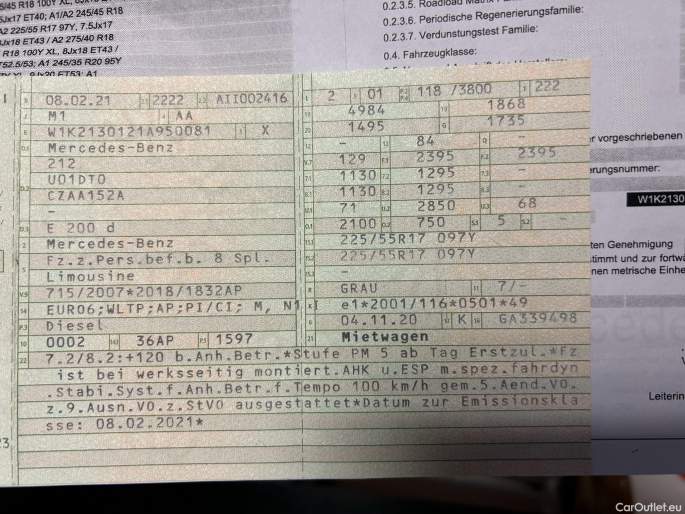 /45 R18 100Y XL,
5Jx17 ET40; A1/A2 245/45 R18
A2 225/55 R17 97Y, 7,5Jx17
Jx18 ET43 / A2 275/40 R18
R18 100Y XL, 8Jx18 ET43 /
T52.5/53; A1 245/35 R20 95Y
0.2.3.5. Roadload
0.2.3.6. Periodische Regenerierungsfamilie:
0.2.3.7. Verdunstungstest Familie:
0.4. Fahrzeugklasse:
08.02.21 2222 AII002416 2 01 118 /3800 222
M1 AA 4984 1868
W1K2130121A950081 X 1495 1735
Mercedes-Benz - 84 -
212 129 2395 2395
U01DT0 1130 1295 -
CZAA152A 1130 1295 -
- 71 2850 68
E 200 d 2100 750 5 -
Mercedes-Benz 225/55R17 097Y
Fz.z.Pers.bef.b. 8 Spl. 225/55R17 097Y
Limousine -
715/2007*2018/1832AP GRAU 7/-
EURO6;WLTP;AP;PI/CI; M, N1 e1*2001/116*0501*49
Diesel 04.11.20 K GA339498
0002 36AP 1597 Mietwagen
7.2/8.2:+120 b.Anh.Betr.*Stufe PM 5 ab Tag Erstzul.*Fz
ist bei werksseitig montiert.AHK u.ESP m.spez.fahrdyn
.Stabi.Syst.f.Anh.Betr.f.Tempo 100 km/h gem.5.Aend.VO.
z.9.Ausn.VO.z.StVO ausgestattet*Datum zur Emissionskla
sse: 08.02.2021*
r vorgeschriebenen
erungsnummer:
W1K2130
ten Genehmigung
stimmt und zur fortw
nen metrische Einhe
Leiterin
CarOutlet.eu